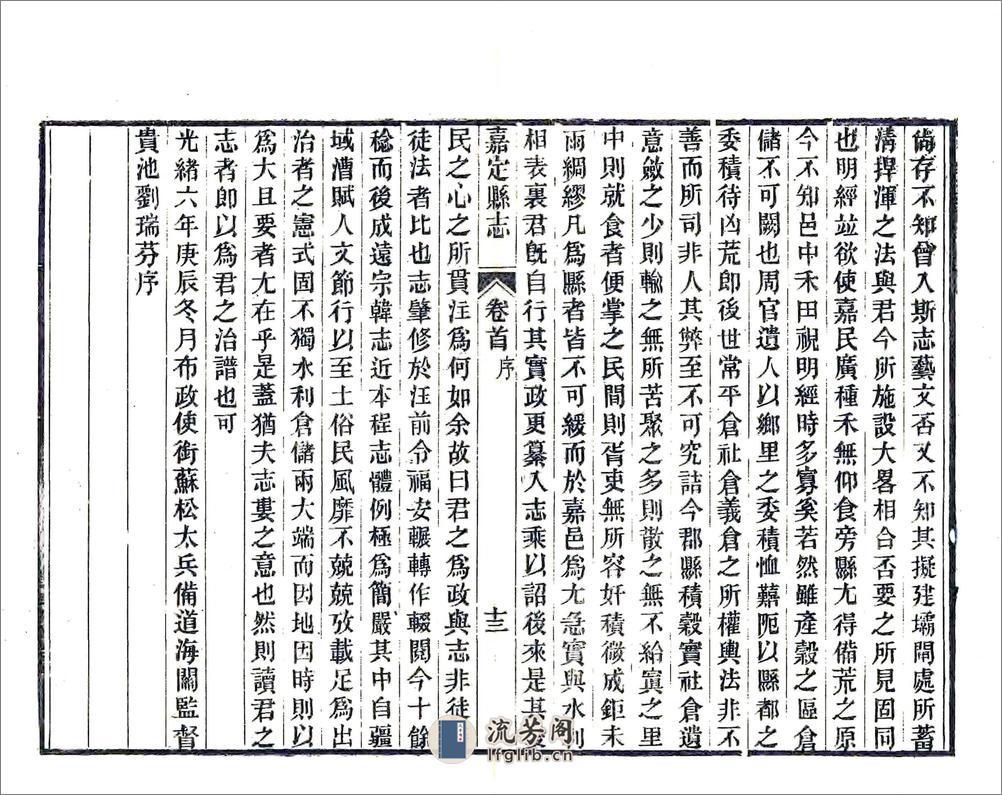 尙存不知曾入斯志藝文否又不知其擬建壩閘處所蓄
淸捍渾之法與君今所施設大畧相合否要之所見固同
也明經並欲使嘉民廣種禾無仰食旁縣尢得備荒之原
今不知邑中禾田視明經時多寡奚若然雖產穀之區倉
儲不可闕也周官遺人以鄉里之委積恤囏阨以縣都之
委積待凶荒卽後世常平倉社倉義倉之所權輿法非不
善而所司非人其弊至不可究詰今郡縣積穀實社倉遺
意斂之少則輸之無所苦聚之多則散之無不給寘之里
中則就食者便掌之民間則胥吏無所容奸積微成鉅未
雨綢繆凡爲縣者皆不可緩而於嘉邑爲尢急實與水利
相表裏君旣自行其實政更纂入志乘以詔後來是其
嘉定縣志 卷首 序 十三
民之心之所貫注爲何如余故曰君之爲政與志非徒
徒法者比也志肇修於汪前令福安輾轉作輟閱今十餘
稔而後成遠宗韓志近本程志體例極爲簡嚴其中自疆
域漕賦人文節行以至土俗民風靡不兢兢攷載足爲出
治者之憲式固不獨水利倉儲兩大端而因地因時則以
爲大且要者尢在乎是蓋猶夫志婁之意也然則讀君之
志者卽以爲君之治譜也可
光緒六年庚辰冬月布政使銜蘇松太兵備道海關監督
貴池劉瑞芬序
流芳阁
lfglib.cn